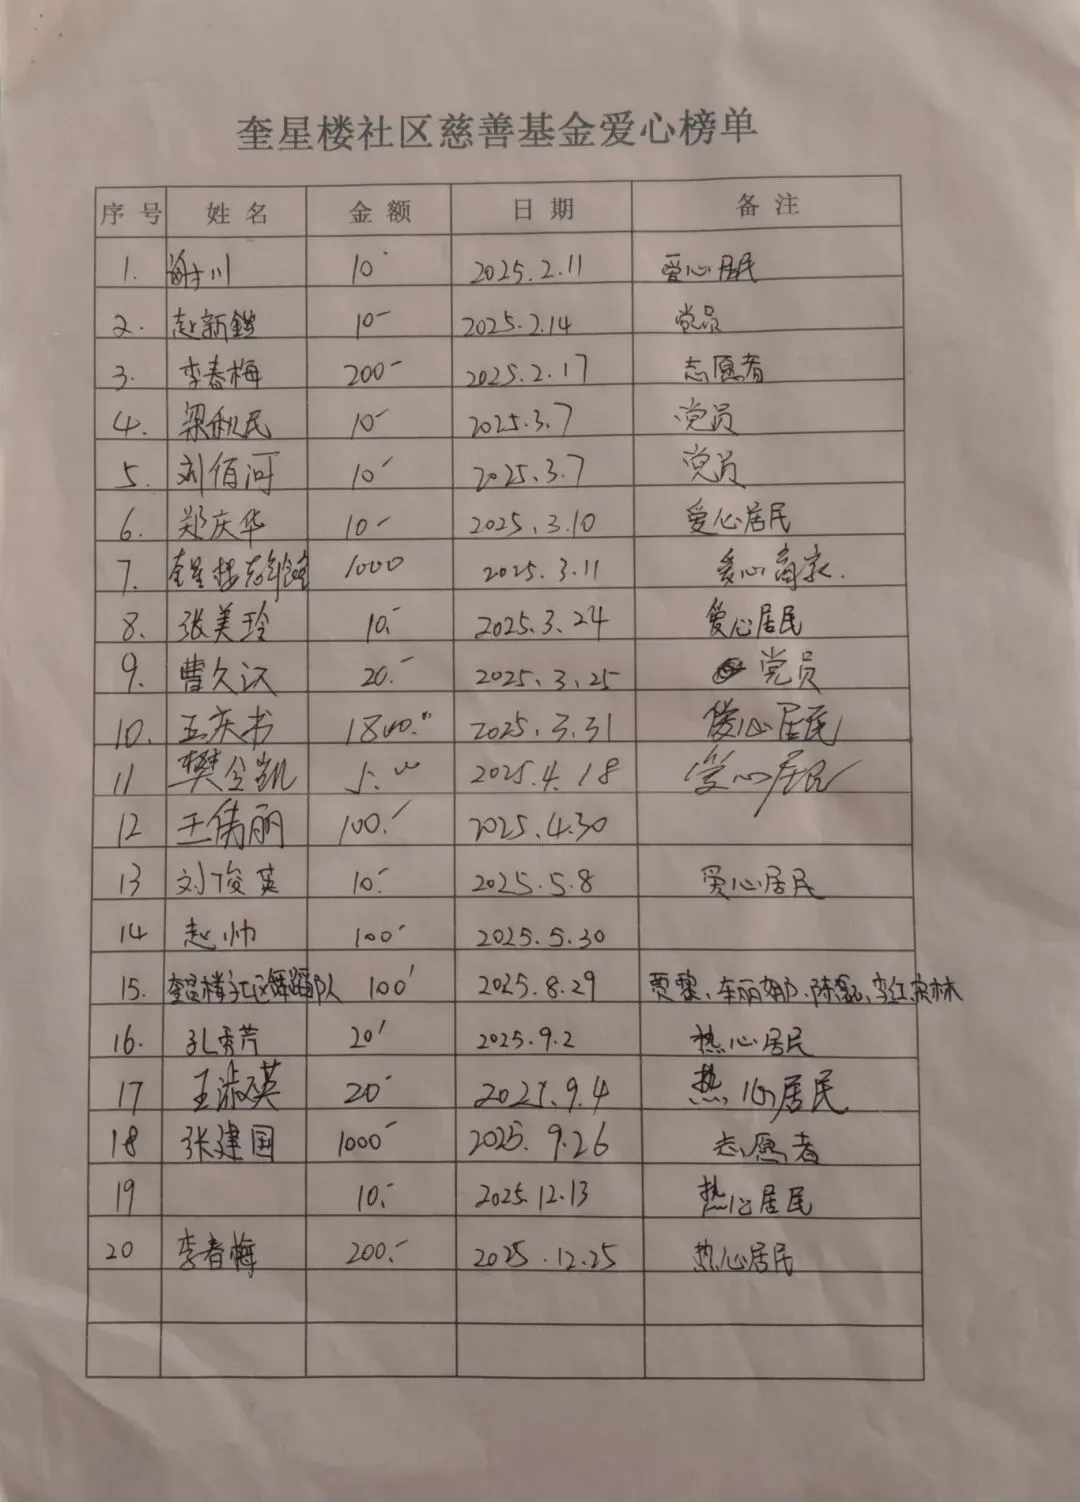 奎星楼社区慈善基金爱心榜单
序号 姓名 金额 日期 备注
1. 川 10 2025.2.11 爱心居民
2. 赵新 10- 2025.2.14 党员
3. 李春梅 200- 2025.2.17 志愿者
4. 梁秋民 10- 2025.3.7 党员
5. 刘佰河 10- 2025.3.7 党员
6. 郑庆华 10- 2025.3.10 爱心居民
7. 奎星楼 1000 2025.3.11 爱心商家.
8. 张美玲 10.- 2025.3.24 爱心居民
9. 曹久汉 20.- 2025.3.25 党员
10. 王庆书 2025.3.31 爱心居民
11 樊金凯 2025.4.18 爱心居民
12 王倩丽 100.- 2025.4.30
13 刘俊英 10.- 2025.5.8 爱心居民
14 赵帅 100- 2025.5.30
15. 奎星楼社区舞蹈队 100- 2025.8.29 贾黎、车丽娜、陈磊、李红、
16. 孔秀芹 20- 2025.9.2 热心居民
17 王淑英 20- 2025.9.4 热心居民
18 张建国 1000- 2025.9.26 志愿者
19 10.- 2025.12.13 热心居民
20 李春梅 200.- 2025.12.25 热心居民